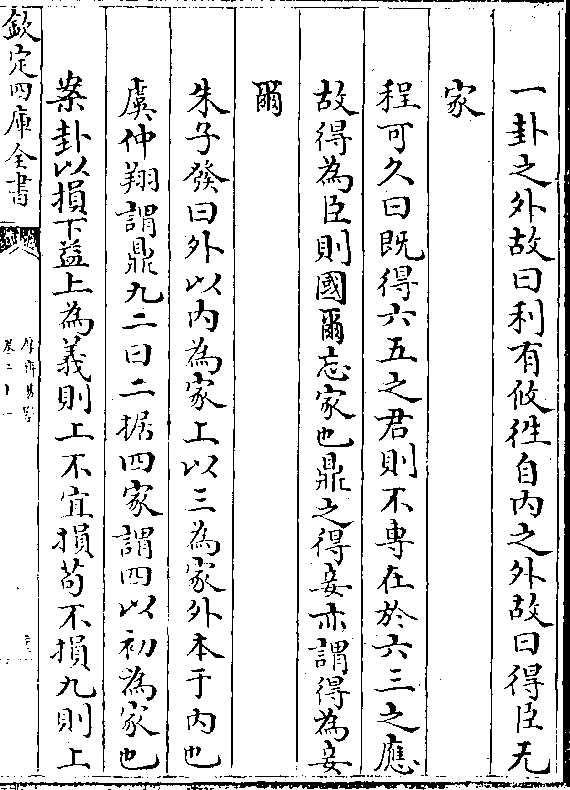 一卦之外故曰利有攸徃自内之外故曰得臣无
家
程可久曰既得六五之君則不專在於六三之應
故得為臣則國爾忘家也鼎之得妾亦謂得為妾
爾
朱子發曰外以内為家上以三為家外本于内也
虞仲翔謂鼎九二曰二據四家謂四以初為家也
案卦以損下益上為義則上不宜損茍不損九則上
欽定四庫全書